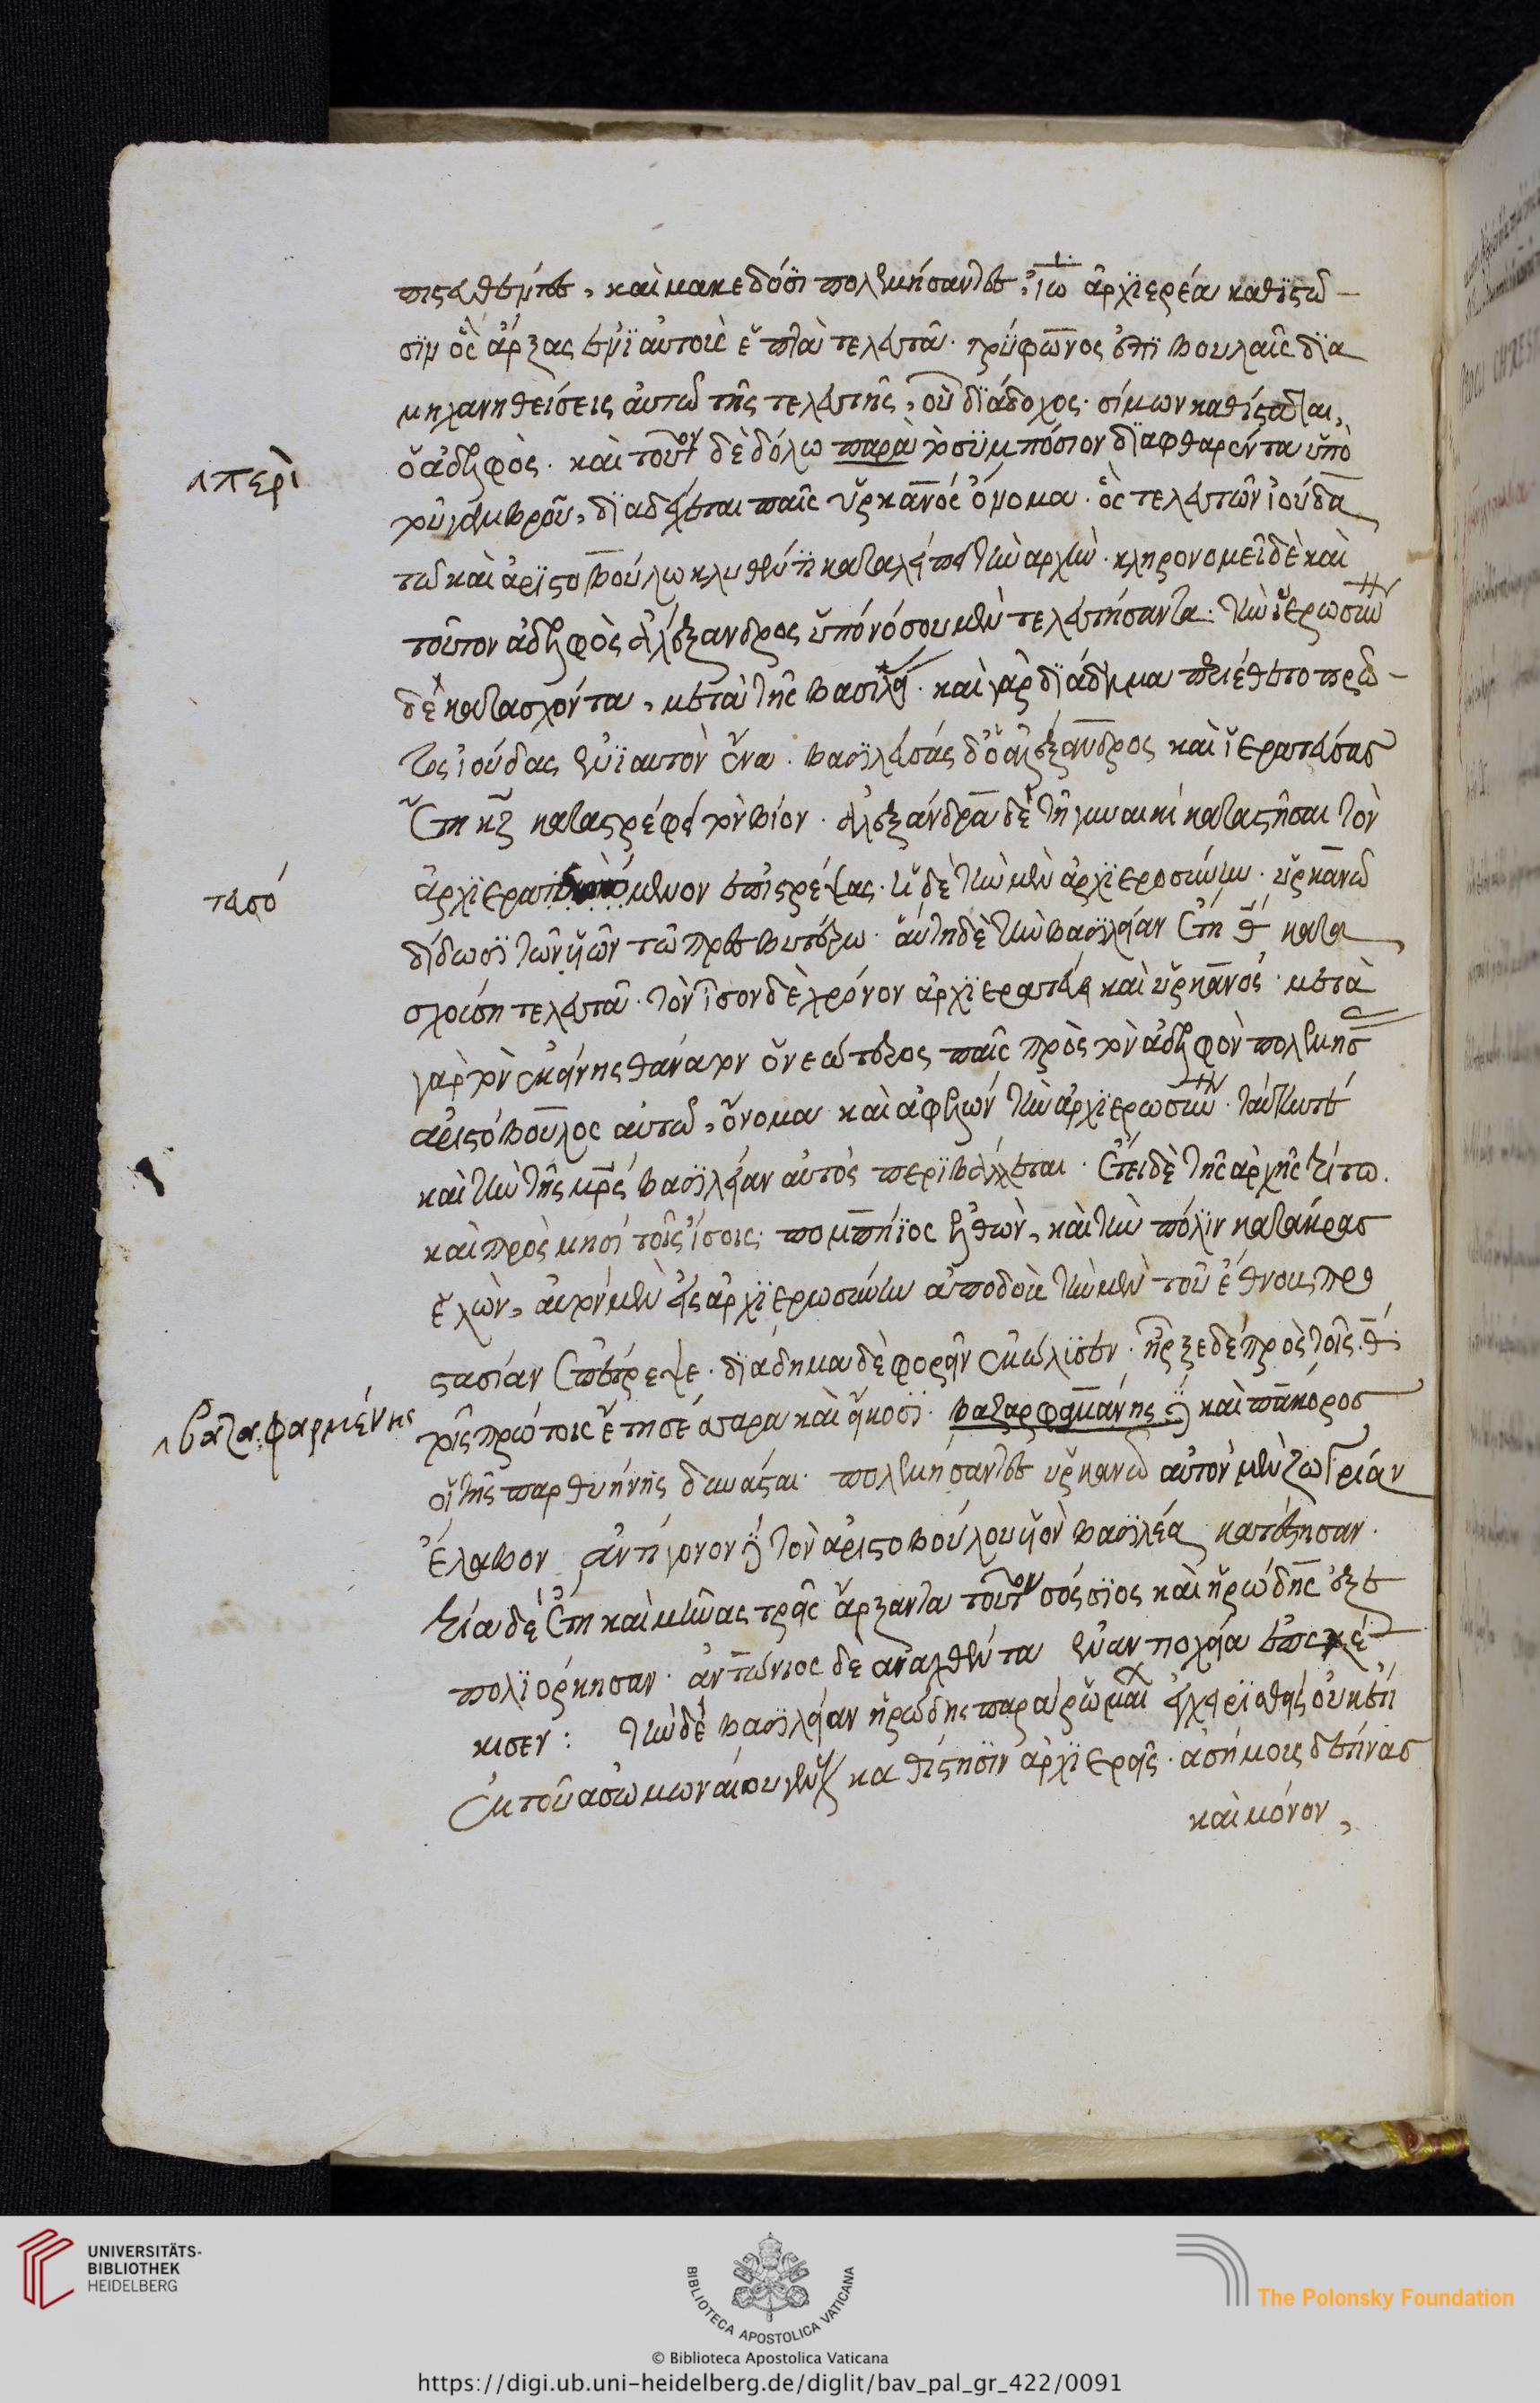 πιστευθέντες, καὶ μακεδόσι πολεμήσαντες, ἰω ἀρχιερέα καθιστῶ-
σιν ὃς ἄρξας ἐνιαυτοὺς ἑπτὰ τελευτᾶ. τρύφωνος ἐπιβουλαῖς δια
μηχανηθείσεις αὐτῶ τῆς τελευτῆς, οὗ διάδοχος. σίμων καθίσταται,
ὁ ἀδελφός. καὶ τοῦτον δὲ δόλω παρὰ τὸ συμπόσιον διαφθαρέντα ὑπὸ
περὶ
τοῦ γαμβροῦ, διαδέχεται παῖς ὑρκανός ὄνομα. ὃς τελευτῶν ἰούδα
τῶ καὶ ἀριστοβούλω κληθέντι καταλείπει τὴν ἀρχήν. κληρονομεῖ δὲ καὶ
τοῦτον ἀδελφὸς ἀλέξανδρος ὑπὸ νόσου μὲν τελευτήσαντα. τὴν ἱερωσύνην
δὲ κατασχόντα, μετὰ τῆς βασιλεί. καὶ γὰρ διάδημα περιέθετο πρῶ-
τος ἰούδας ἐνιαυτὸν ἕνα. βασιλεύσας δ ὁ ἀλέξανδρος καὶ ἱερατεύσας
ἔτη κζ καταστρέφει τὸν βίον. ἀλεξάνδρα δὲ τῆ γυναικί καταστῆσαι τὸν
τευσό
ἀρχιερατευόμενον ἐπιτρέψας. ἡ δὲ τὴν μὲν ἀρχιεροσύνην. ὑρκανῶ
δίδωσι τῶν υἱῶν τῶ πρεσβυτέρω. αὐτὴ δὲ τὴν βασιλείαν ἔτη θ κατα
σχοῦσα τελευτᾶ. τὸν ἴσον δὲ χρόνον ἀρχιερατεύει καὶ ὑρκανός. μετὰ
γὰρ τὸν ἐκείνης θάνατον ὁ νεώτερος παῖς πρὸς τὸν ἀδελφὸν πολεμήσ
ἀριστόβουλος αὐτῶ, ὄνομα καὶ ἀφελὼν τὴν ἀρχιερωσύνην. ταύτην τε
καὶ τὴν τῆς μρς βασιλείαν αὐτὸς περιβάλλεται. ἔτει δὲ τῆς ἀρχῆς τρίτω.
καὶ πρὸς μησὶ τοῖς ἴσοις. πομπήϊος ἐλθὼν, καὶ τὴν πόλιν κατάκρας
ἑλὼν, αὐτὸν μὲν εἰς ἀρχιερωσύνην ἀποδοὺς τὴν μὲν τοῦ ἔθνους προ
στασίαν ἐπέτρεψε. διάδημα δὲ φορεῖν ἐκώλυσεν. ἦρξε δὲ πρὸς τοῖς θ
βαζαφαρμένης
τοῖς πρώτοις ἔτη τέσσαρα καὶ εἴκοσι. βαζαρφαμάνης δὲ καὶ πάκορος
οἱ τῆς παρθυήνης δυνάσται. πολεμήσαντες ὑρκανῶ αὐτὸν μὲν ζωγρίαν
ἔλαβον ἀντίγονον δὲ τὸν ἀριστοβούλου υἱὸν βασιλέα κατέστησαν.
τρία δὲ ἔτη καὶ μῆνας τρεῖς ἄρξαντα τοῦτον σόσσιος καὶ ἡρώδης ἐξε
πολιόρκησαν. ἀντώνιος δὲ ἀναχθέντα ἐν ἀντιοχεία ἐπελέ-
κισεν: τὴν δὲ βασιλείαν ἡρώδης παρὰ ῥωμαί ἐγχειρισθεὶς οὐκέτι
ἐκ τοῦ ἀσαμωναίου γένους καθίστησιν ἀρχιερεῖς. ἀσήμους δέ τινας
καὶ μόνον,
UNIVERSITÄTS-
BIBLIOTHEK
HEIDELBERG
BIBLIOTECA APOSTOLICA VATICANA
The Polonsky Foundation
© Biblioteca Apostolica Vaticana
https://digi.ub.uni-heidelberg.de/diglit/bav_pal_gr_422/0091